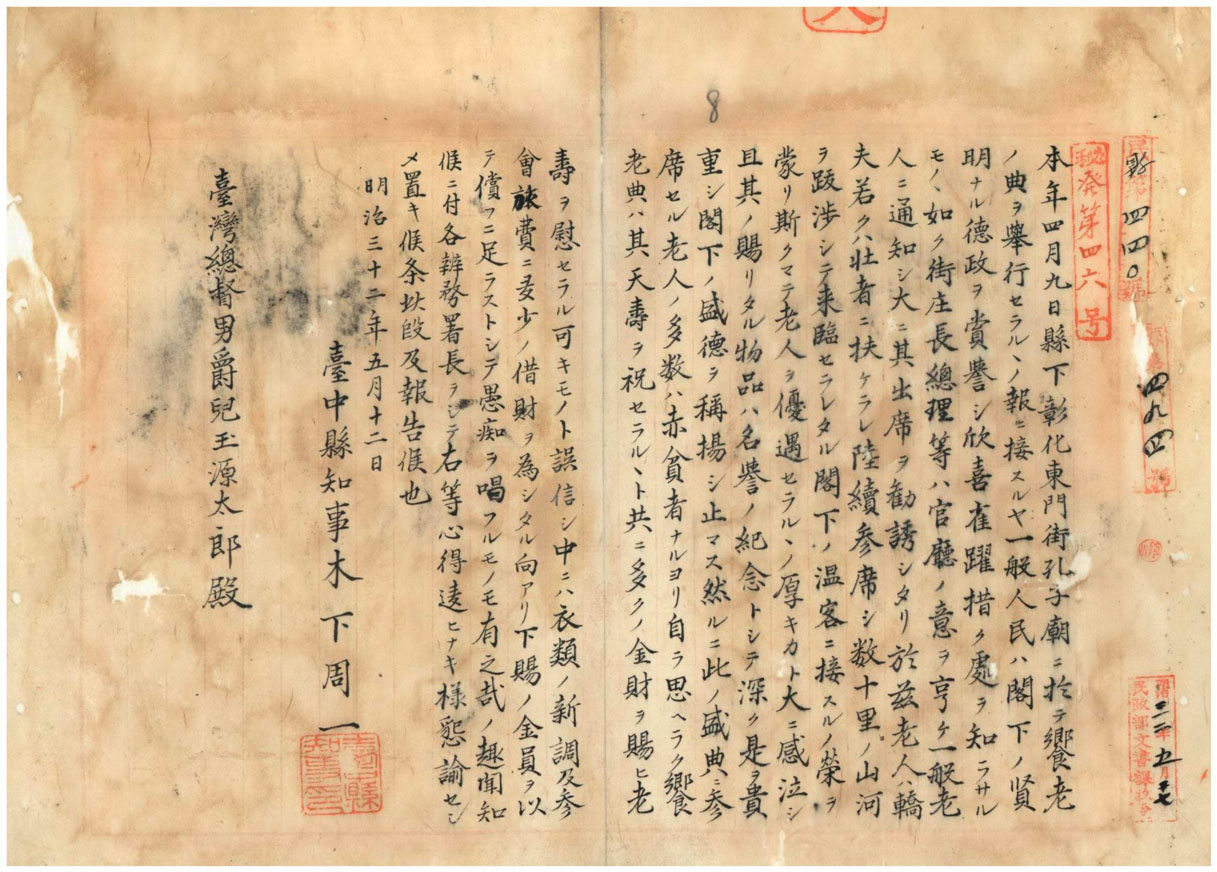 8
秘発第四六号
四四〇
四九四
民政部文書課
本年四月九日縣下彰化東門街孔子廟ニ於テ饗老
ノ典ヲ舉行セラルヽノ報ニ接スルヤ一般人民ハ閣下ノ賢
明ナル德政ヲ賞譽シ欣喜雀躍措ク處ヲ知ラサル
モノヽ如ク街庄長總理等ハ官廳ノ意ヲ亨ケ一般老
人ニ通知シ大ニ其出席ヲ勸誘シタリ於玆老人ハ轎
夫若クハ壮者ニ扶ケラレ陸續参席シ数十里ノ山河
ヲ跋渉シテ来臨セラレタル閣下ノ温客ニ接スルノ榮ヲ
蒙リ斯クマテ老人ヲ優遇セラルヽノ厚キカト大ニ感泣シ
且其ノ賜リタル物品ハ名譽ノ紀念トシテ深ク是ヲ貴
重シ閣下ノ盛德ヲ稱揚シ止マス然ルニ此ノ盛典ニ参
席セル老人ノ多数ハ赤貧者ナルヨリ自ラ思ヘラク饗
老典ハ其天壽ヲ祝セラルヽト共ニ多クノ金財ヲ賜ヒ老
壽ヲ慰セラル可キモノト誤信シ中ニハ衣類ノ新調及参
會旅費ニ多少ノ借財ヲ為シタル向アリ下賜ノ金員ヲ以
テ償フニ足ラストシテ愚痴ヲ唱フルモノモ有之哉ノ趣聞知
候ニ付各辨務署長ヲシテ右等心得違ヒナキ様懇諭セシ
メ置キ候条此段及報告候也
明治三十二年五月十二日
臺中縣知事木下周一
臺中縣知事之印
臺灣總督男爵兒玉源太郎殿